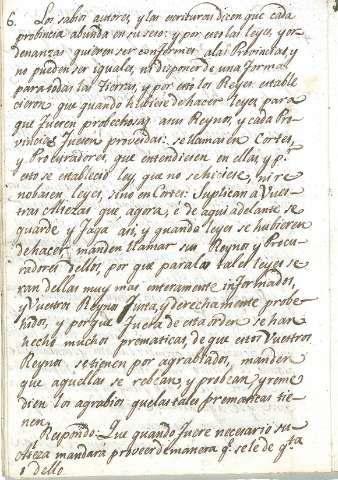 6. Los sabios autores, y las escrituras dicen que cada
probincia abunda en su seso: y por esto las leyes, y or-
denanzas quieren ser conformes a las Probincias, y
no pueden ser iguales, ni disponer de una forma
para todas las tierras, y por esto los Reyes estable
cieron que quando hubiere de hacer leyes para
que fueren probechosas a sus Reynos, y cada Pro-
vincias fueren proveidas: se llamasen Cortes,
y Procuradores, que entendiesen en ellas, y p.r
esto se estableció ley que no se hiciese, ni re
nobasen leyes, sino en Cortes: Suplican a Vues-
tras Altezas que, agora, é de aqui adelante se
guarde y faga asi, y quando leyes se hubieren
de hacer, manden llamar sus Reynos y Procu-
radores dellos, por que para las tales leyes se
ran dellas muy mas enteramente informados,
y Vuestros Reynos Justa, y derechamente probei
hidos, y porque fuera de esta orden se han
hecho muchas prematicas, de que estos Vuestros
Reynos se tienen por agrabiados, manden
que aquellas se rebean, y probean, y reme
dien los agrabios que las tales prematicas tie-
nen.
Respondo: Que quando fuere necesario su
Alteza mandará proveer de manera q.e se le de q.ta
dello